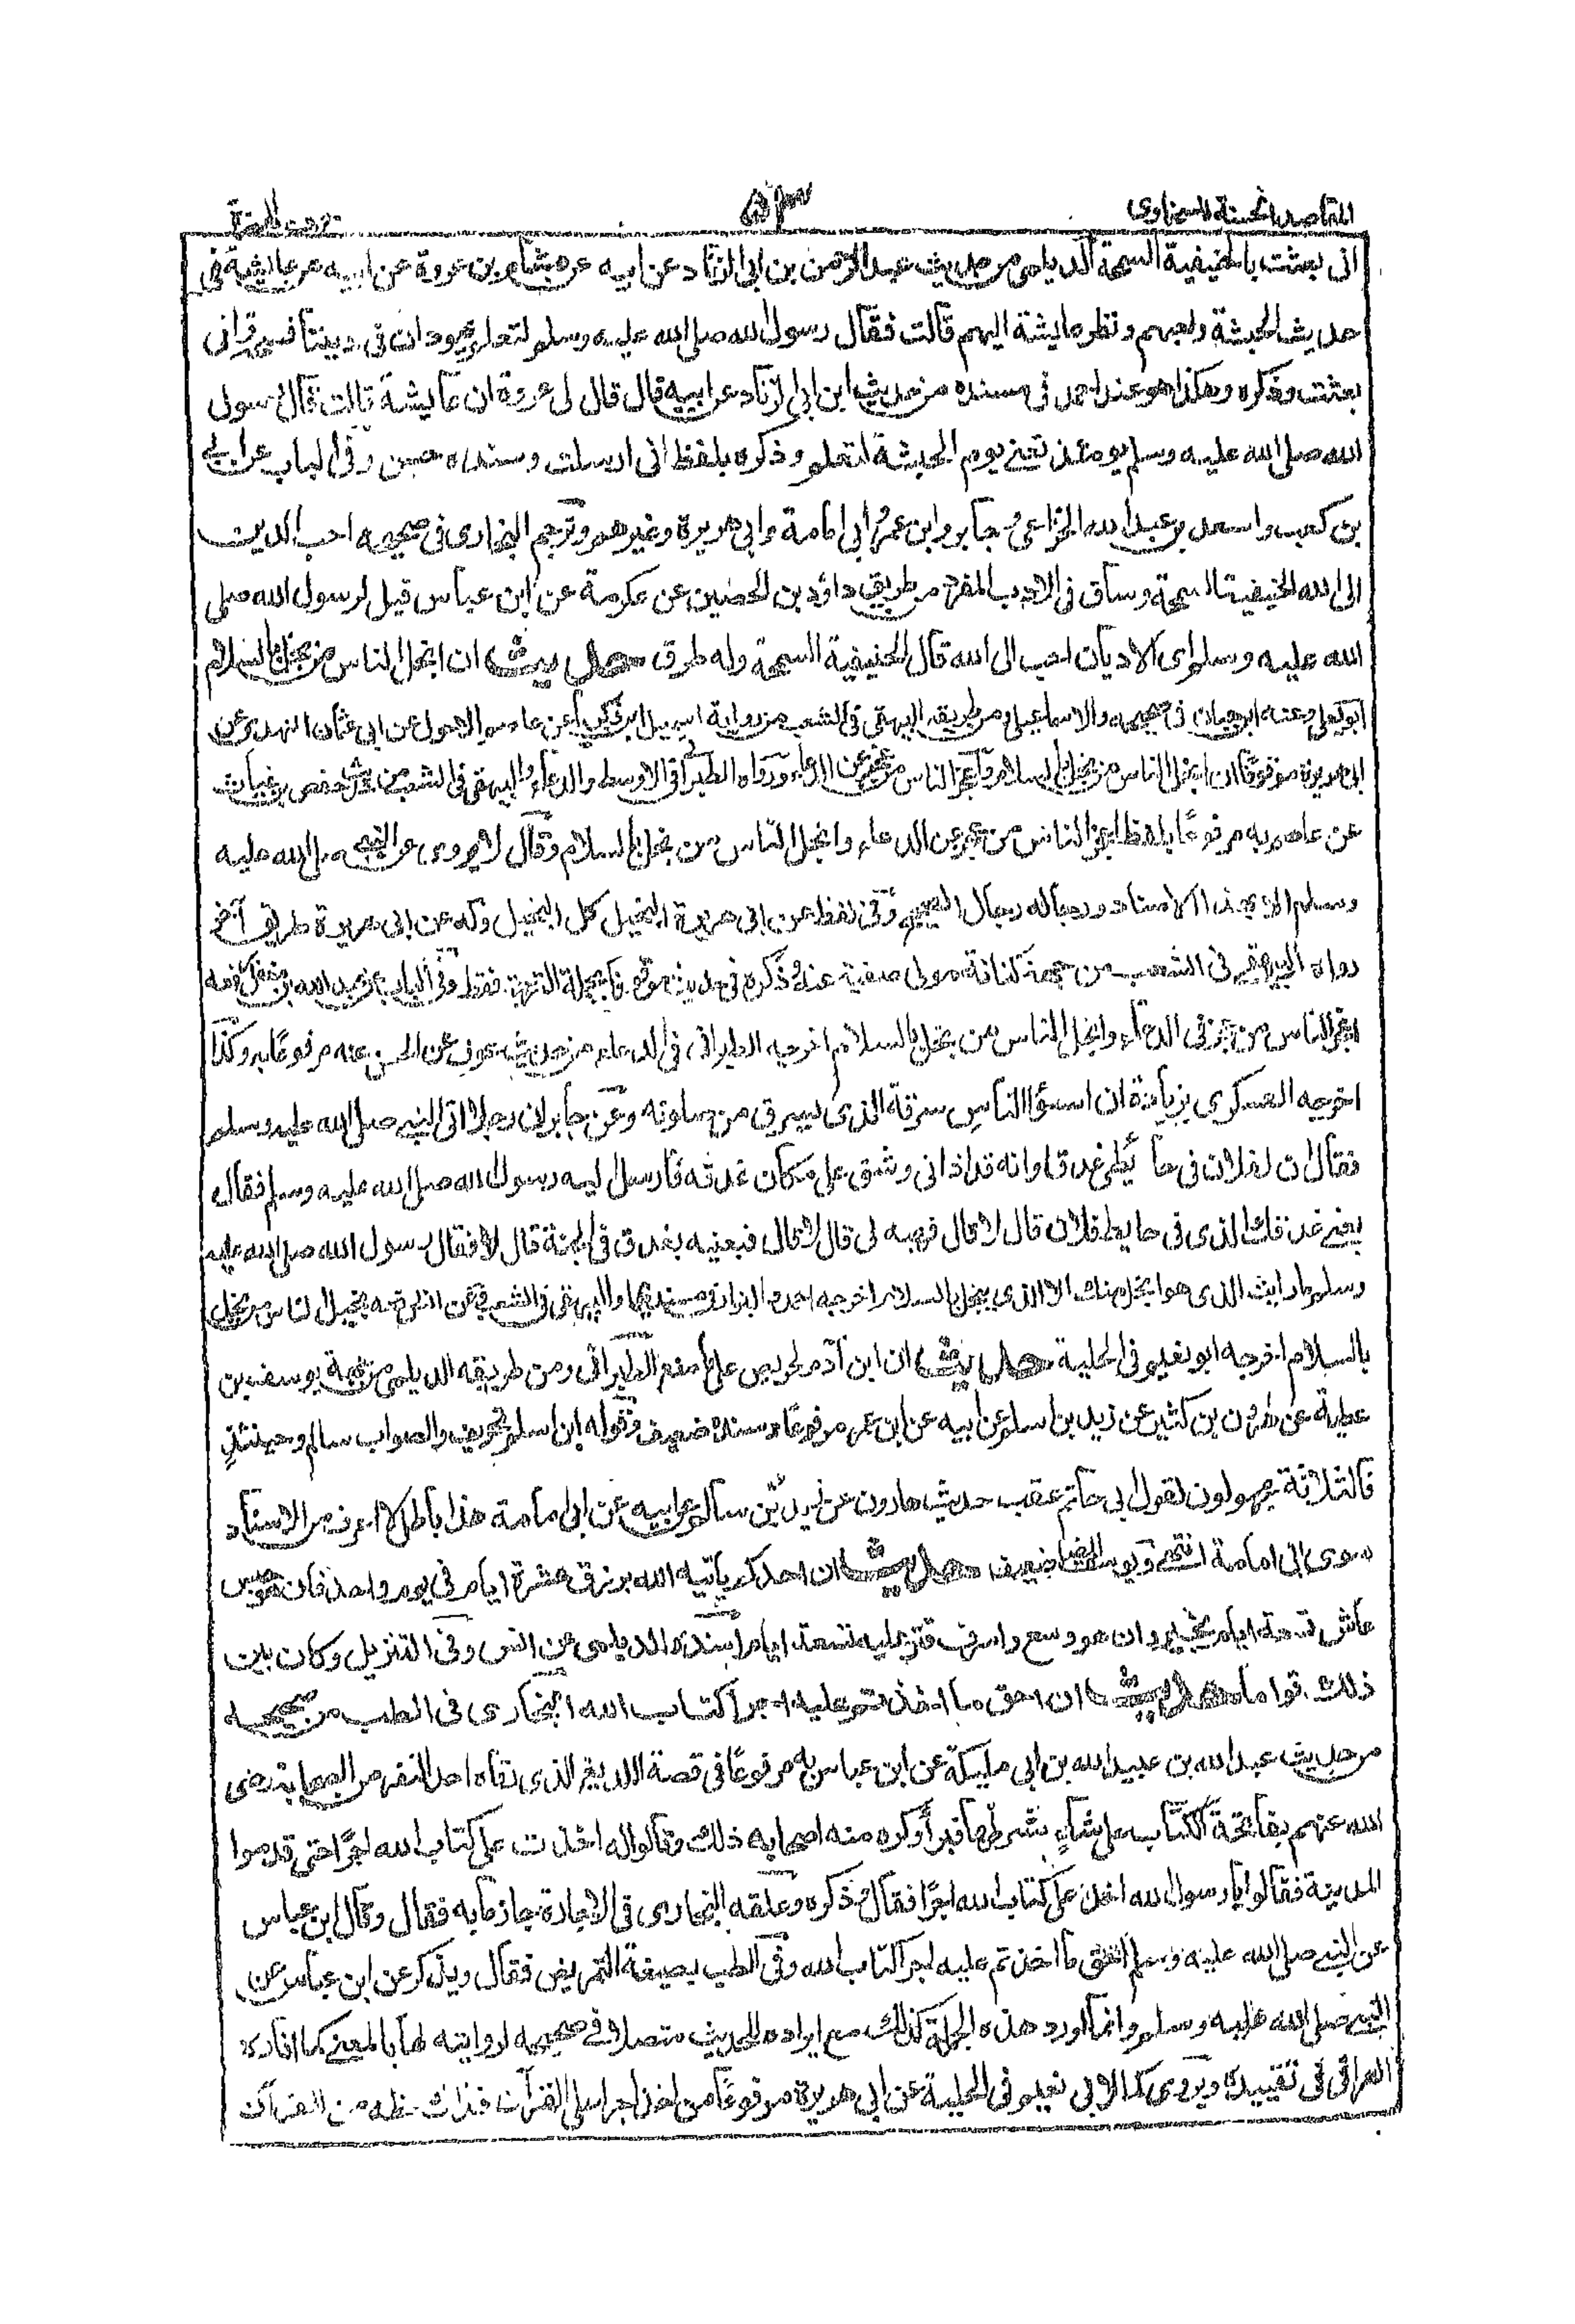 المقاصد الحسنة للسخاوى ٥٣
انى بعثت بالحنيفية السمحة الديلمى من حديث عبد الرحمن بن ابى الزناد عن ابيه عن هشام بن عروة عن ابيه عن عايشة فى
حديث الحبشة ولعبهم ونظر عايشة اليهم قالت فقال رسول الله صلى الله عليه وسلم لتعلم يهود ان فى ديننا فسحة انى
بعثت وذكره وهكذا هو عند احمد فى مسنده من حديث ابن ابى الزناد عن ابيه قال قال لى عروة ان عايشة قالت قال رسول
الله صلى الله عليه وسلم يومئذ تعنى يوم الحبشة لتعلم وذكره بلفظ انى ارسلت وسنده حسن وفى الباب عن ابى
بن كعب واسعد بن عبد الله الخزاعى وجابر وابن عمر وابى امامة وابى هريرة وغيرهم وترجم البخارى فى صحيحه احب الدين
الى الله الحنيفية السمحة وساق فى الادب المفرد من طريق داؤد بن الحصين عن عكرمة عن ابن عباس قيل لرسول الله صلى
الله عليه وسلم اى الاديان احب الى الله قال الحنيفية السمحة وله طرق حديث ان ابخل الناس من بخل بالسلام
ابو يعلى وعنه ابن حبان فى صحيحه والاسماعيلى ومن طريقه البيهقى فى الشعب من رواية اسمعيل بن زكريا عن عاصم الاحول عن ابى عثمان النهدى عن
ابى هريرة موقوفًا ان ابخل الناس من بخل بالسلام واعجز الناس من عجز عن الدعاء ورواه الطبرانى فى الاوسط والدعاء والبيهقى فى الشعب من حديث حفص بن غياث
عن عاصم به مرفوعًا بلفظ اعجز الناس من عجز عن الدعاء وابخل الناس من بخل بالسلام وقال لا يروى عن النبى صلى الله عليه
وسلم الا بهذا الاسناد ورجاله رجال الصحيح وفى لفظ عن ابى هريرة البخيل كل البخيل وله عن ابى هريرة طريق آخر
رواه البيهقى فى الشعب من جهة كنانة مولى صفية عنه وذكره فى حديث موقوف فالجملة الثانية فقط وفى الباب عن عبد الله بن مغفل رفعه
اعجز الناس من عجز فى الدعاء وابخل الناس من بخل بالسلام اخرجه الطبرانى فى الدعاء من حديث عوف عن الحسن عنه مرفوعًا به وكذا
اخرجه العسكرى بزيادة ان اسوأ الناس سرقة الذى يسرق من صلوته وعن جابر ان رجلا اتى النبى صلى الله عليه وسلم
فقال ان لفلان فى حايطى غدقا وانه قد اذانى وشق على مكان غدقه فارسل اليه رسول الله صلى الله عليه وسلم فقال
بعنى غدقك الذى فى حايط فلان قال لا قال فهبه لى قال لا قال فبعنيه بغدق فى الجنة قال لا فقال رسول الله صلى الله عليه
وسلم ما رايت الذى هو ابخل منك الا الذى يبخل بالسلام اخرجه احمد والبزار فى مسنديهما والبيهقى فى الشعب وعن انس رفعه بخيل الناس من بخل
بالسلام اخرجه ابو نعيم فى الحلية حديث ان ابن آدم لحريص على ما منع الطبرانى ومن طريقه الديلمى من جهة يوسف بن
عطية عن هارون بن كثير عن زيد بن اسلم عن ابيه عن ابن عمر مرفوعًا وسنده ضعيف وقوله ابن اسلم تحريف والصواب سالم وحينئذٍ
فالثلاثة مجهولون لقول ابى حاتم عقب حديث هارون عن زيد بن سالم عن ابيه عن ابى امامة هذا باطل لا اعرف من الاسناد
سوى ابى امامة انتهى ويوسف ايضًا ضعيف حديث ان احدكم ياتيه الله برزق عشرة ايام فى يوم واحد فان هو حبس
عاش تسعة ايام بخير وان هو وسع واسرف قتر عليه تسعة ايام اسنده الديلمى عن انس وفى التنزيل وكان بين
ذلك قواما حديث ان احق ما اخذتم عليه اجرا كتاب الله البخارى فى الطب من صحيحه
من حديث عبد الله بن عبيد الله بن ابى مليكة عن ابن عباس به مرفوعًا فى قصة اللديغ الذى رقاه احد النفر من الصحابة رضى
الله عنهم بفاتحة الكتاب على شاءٍ شرطها فبرأ وكره منه اصحابه ذلك وقالوا له اخذت على كتاب الله اجرًا حتى قدموا
المدينة فقالوا يا رسول الله اخذ على كتاب الله اجرًا فقال وذكره وعلقه البخارى فى الاجارة جازما به فقال وقال ابن عباس
عن النبى صلى الله عليه وسلم احق ما اخذتم عليه اجرا كتاب الله وفى الطب بصيغة التمريض فقال ويذكر عن ابن عباس عن
النبى صلى الله عليه وسلم وانما اورد هذه الجملة كذلك مع ايراده للحديث متصلا فى صحيحه لروايته لها بالمعنى كما افاده
العراقى فى تقييده ويروى كما لابى نعيم فى الحلية عن ابى هريرة مرفوعًا من اخذ اجرا على القرآن فذاك حظه من القرآن